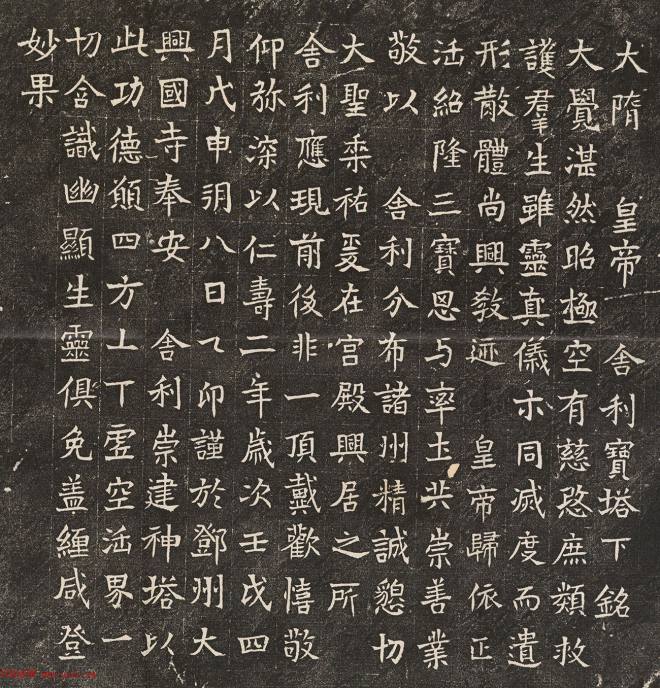 大隋 皇帝 舍利寶塔下銘
大覺湛然昭極空有慈愍庶類救
護羣生雖靈真儀示同滅度而遺
形散體尚興敎迹 皇帝歸依正
法紹隆三寶思与率土共崇善業
敬以 舍利分布諸州精誠懇切
大聖垂祐爰在宮殿興居之所
舍利應現前後非一頂戴歡憘敬
仰弥深以仁壽二年歲次壬戌四
月戊申朔八日乙卯謹於鄧州大
興國寺奉安 舍利崇建神塔以
此功德願四方上下虛空法界一
切含識幽顯生靈俱免盖纏咸登
妙果